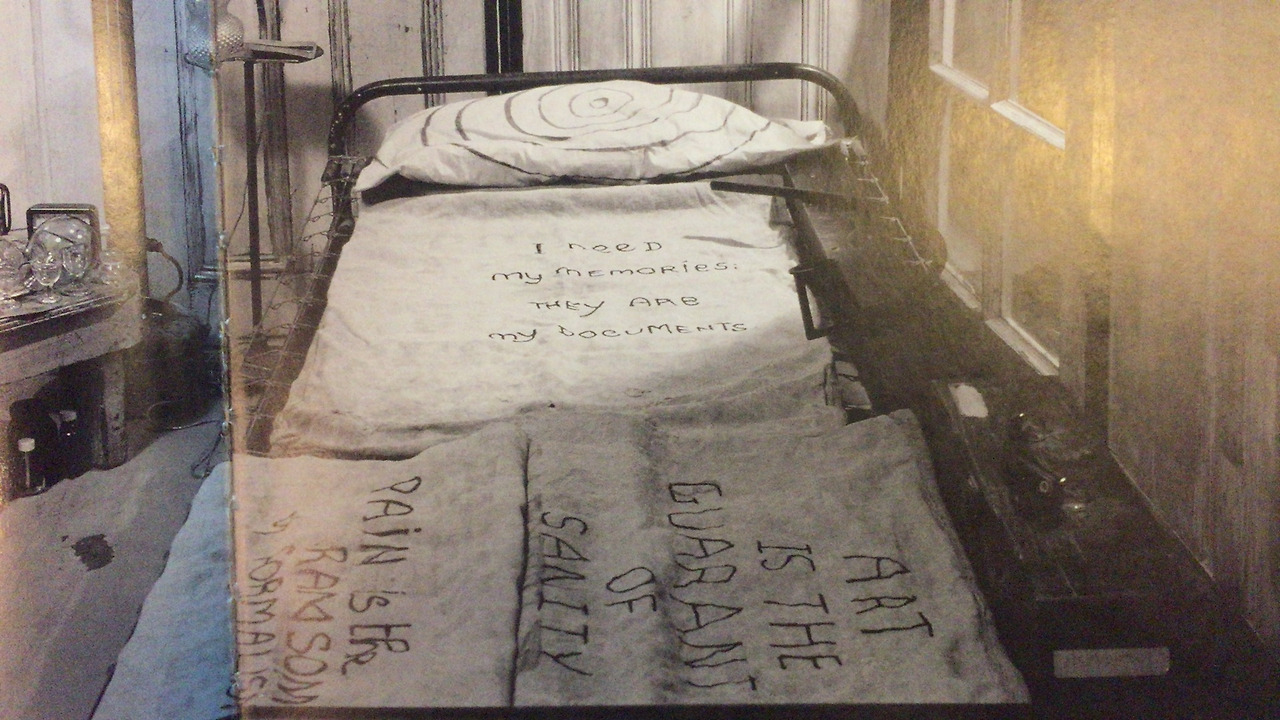 I NEED
MY MEMORIES:
THEY ARE
MY DOCUMENTS
ART
IS THE
GUARANT
OF
SANITY
PAiN is the
RANSOM
FORMALIS